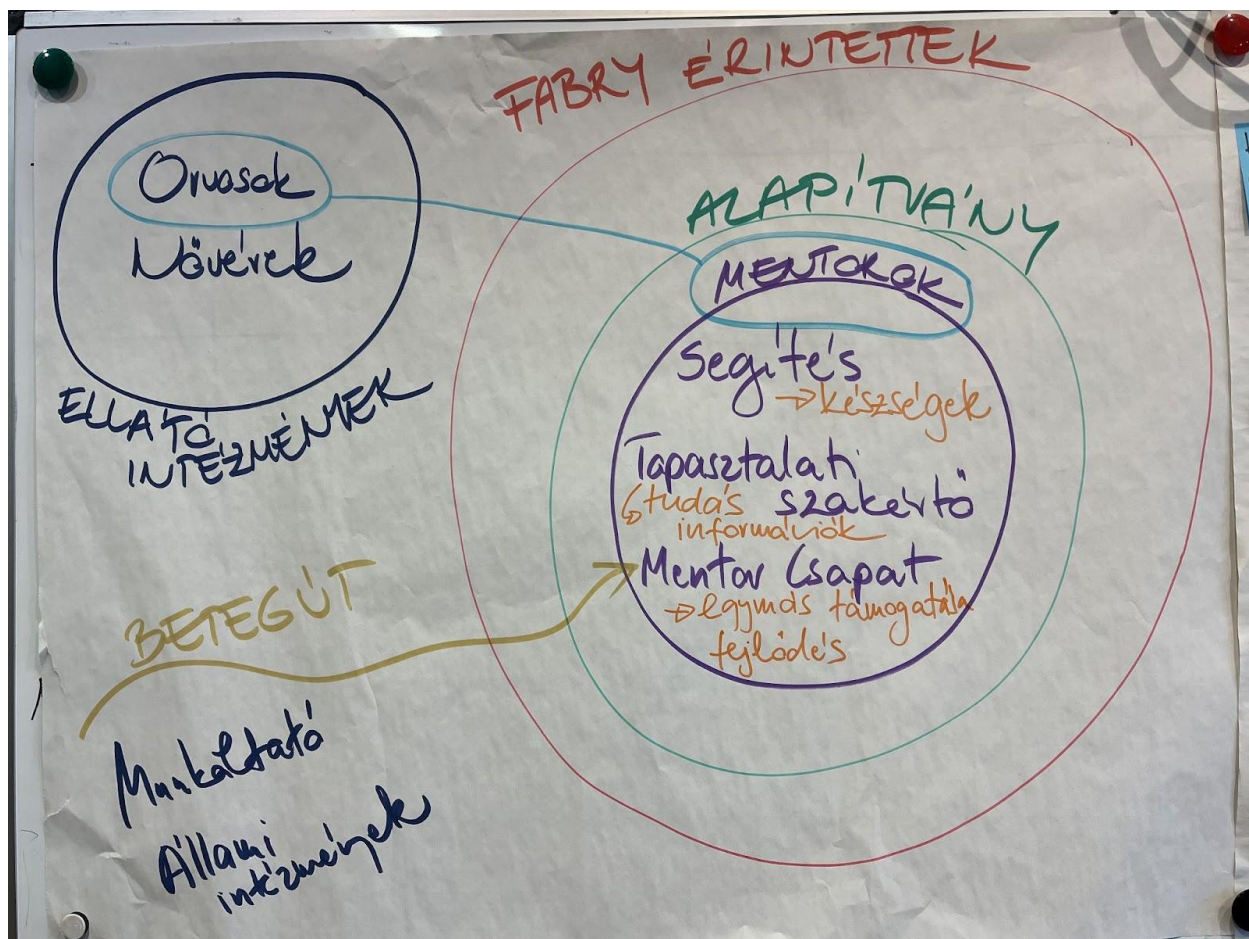 FABRY ÉRINTETTEK
Orvosok
Nővérek
ELLÁTÓ
INTÉZMÉNYEK
ALAPÍTVÁNY
MENTOROK
Segítés
→ készségek
Tapasztalati
szakértő
↳ tudás
információk
Mentor Csapat
→ egymás támogatása
fejlődés
BETEGÚT
Munkáltató
Állami
intézmények